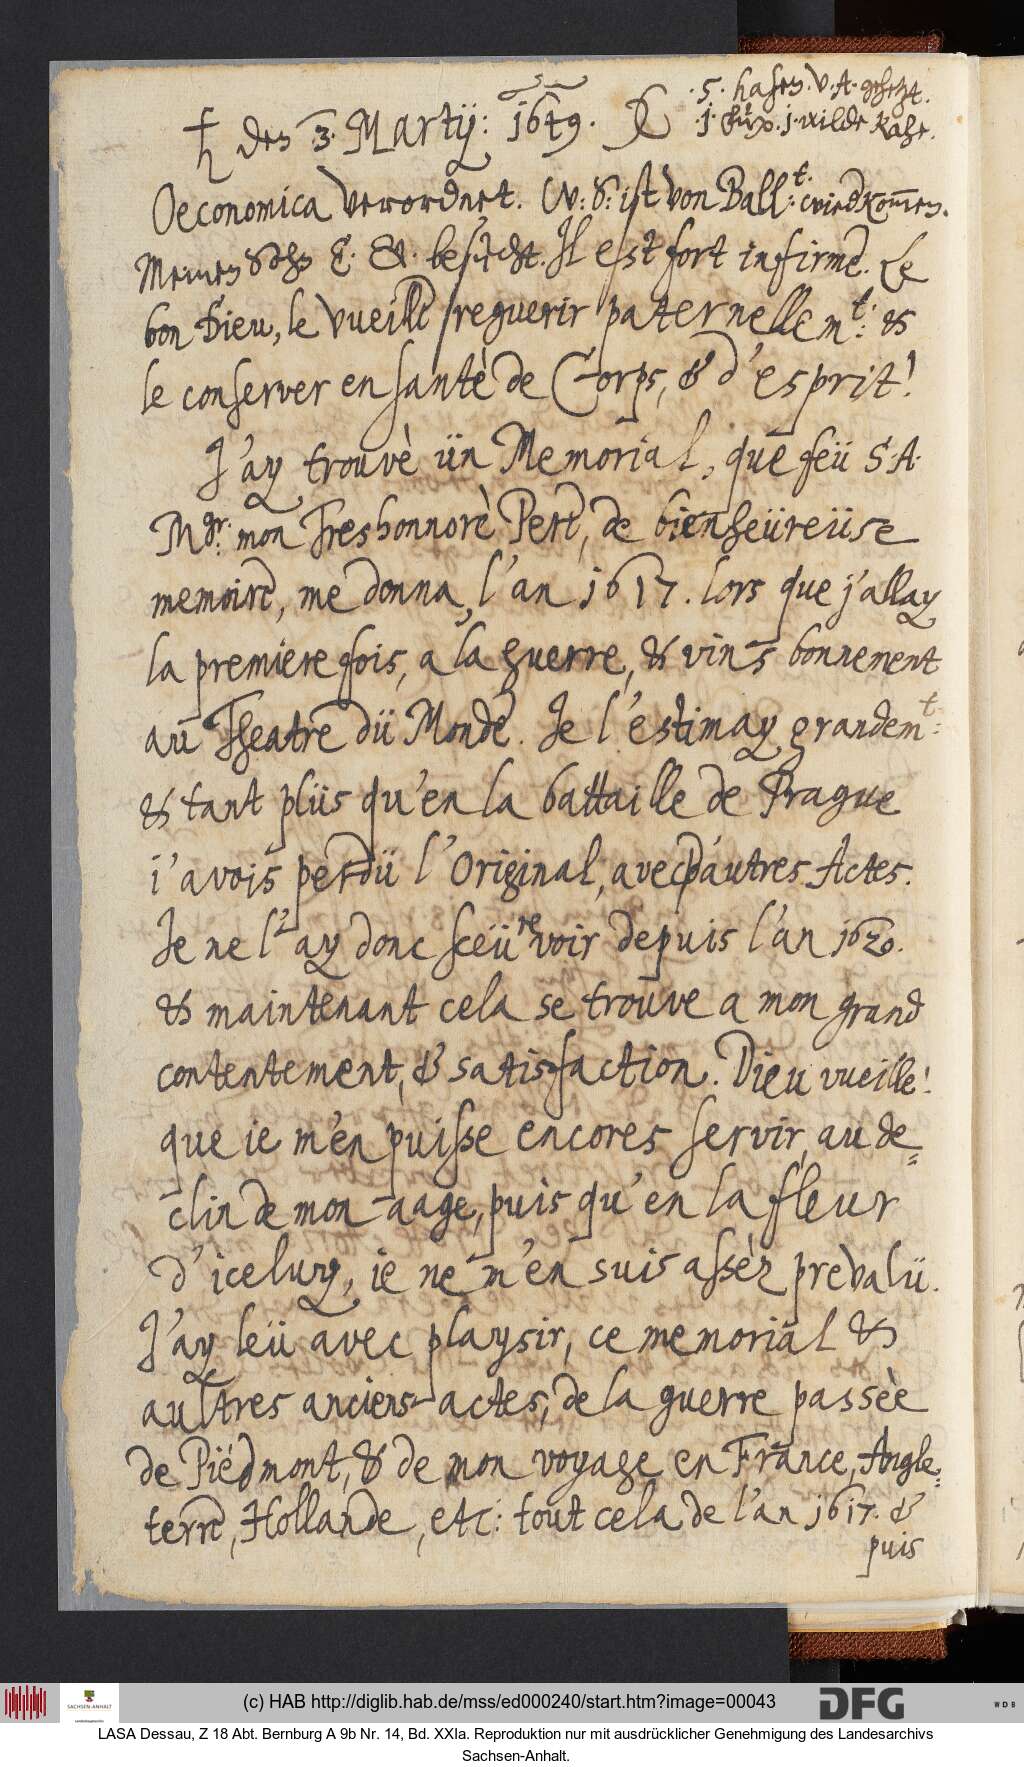 .5. hasen. v. A. gehetzt.
ħ den 3. Martij: 1649.
.j. fuchß. j. wilde Katze.
Oeconomica verordnet. N: S: ist von Ball:t: wiedkommen.
Meinen Sohn E. A. besucht. Il est fort infirme. Le
bon Dieu, le vueille reguerir paternellem:t: &
le conserver en santè de Corps, & d'esprit!
J'ay trouvè ün Memorial, que feü S. A.
Mgr: mon Treshonnorè Pere, de bienheüreüse
memoire, me donna, l'an 1617. lors que j'allay
la premiere fois, a la guerre, & vins bonnement
au Theatre dü Monde. Je l'estimay grandem:t:
& tant plüs qu'en la battaille de Prague
i'avois perdü l'Original, avec d'autres Actes.
Je ne l'ay donc sceü revoir depuis l'an 1620.
& maintenant cela se trouve a mon grand
contentement, & satisfaction. Dieu vueille!
que ie m'en puisse encores servir, au de=
clin de mon aage, puis qu'en la fleur
d'iceluy, ie ne m'en suis assèz prevalü.
J'ay leü avec playsir, ce memorial &
aultres anciens actes, de la guerre passèe
de Piédmont, & de mon voyage en France, Angle=
terre, Hollande, etc: tout cela de l'an 1617. &
puis
(c) HAB http://diglib.hab.de/mss/ed000240/start.htm?image=00043
SACHSEN-ANHALT
DFG
WDB
LASA Dessau, Z 18 Abt. Bernburg A 9b Nr. 14, Bd. XXIa. Reproduktion nur mit ausdrücklicher Genehmigung des Landesarchivs
Sachsen-Anhalt.